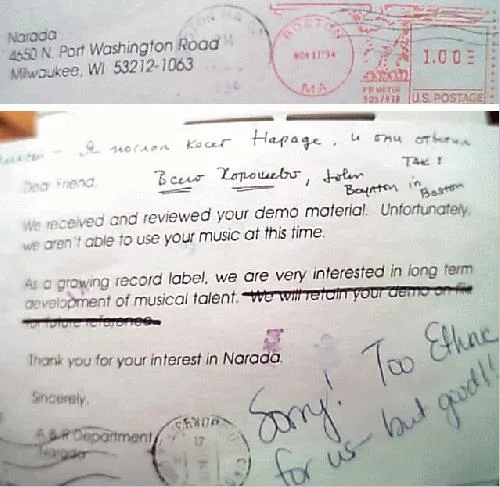 Narada
4650 N. Port Washington Road
Milwaukee, WI 53212-1063
BOSTON
NOV 11 '94
MA
1.00
PB METER
U.S. POSTAGE
Я послал касет Нараде, и они ответили
так!
Dear Friend,
Всего Хорошево, John
Boynton in
Boston
We received and reviewed your demo material. Unfortunately,
we aren't able to use your music at this time.
As a growing record label, we are very interested in long term
development of musical talent. We will retain your demo on file
for future reference.
Thank you for your interest in Narada.
Sincerely,
A & R Department
Narada
Sorry! Too Ethnic
for us - but good!!